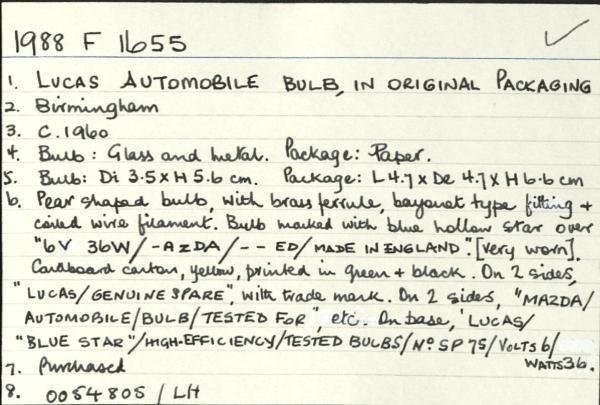 1988 F 1655 ✓
1. LUCAS AUTOMOBILE BULB, IN ORIGINAL PACKAGING
2. Birmingham
3. C. 1960
4. Bulb: Glass and metal. Package: Paper.
5. Bulb: Di 3.5 x H 5.6 cm. Package: L 4.7 x De 4.7 x H 6.6 cm
6. Pear shaped bulb, with brass ferrule, bayonet type fitting +
coiled wire filament. Bulb marked with blue hollow star over
"6V 36W/-AZDA/-- ED/MADE IN ENGLAND". [very worn].
Cardboard carton, yellow, printed in green + black. On 2 sides,
"LUCAS/GENUINE SPARE", with trade mark. On 2 sides, "MAZDA/
AUTOMOBILE/BULB/TESTED FOR", etc. On base, 'LUCAS/
"BLUE STAR"/HIGH-EFFICIENCY/TESTED BULBS/No SP 75/VOLTS 6/
WATTS 36.
7. Purchased
8. 0054805 / LH